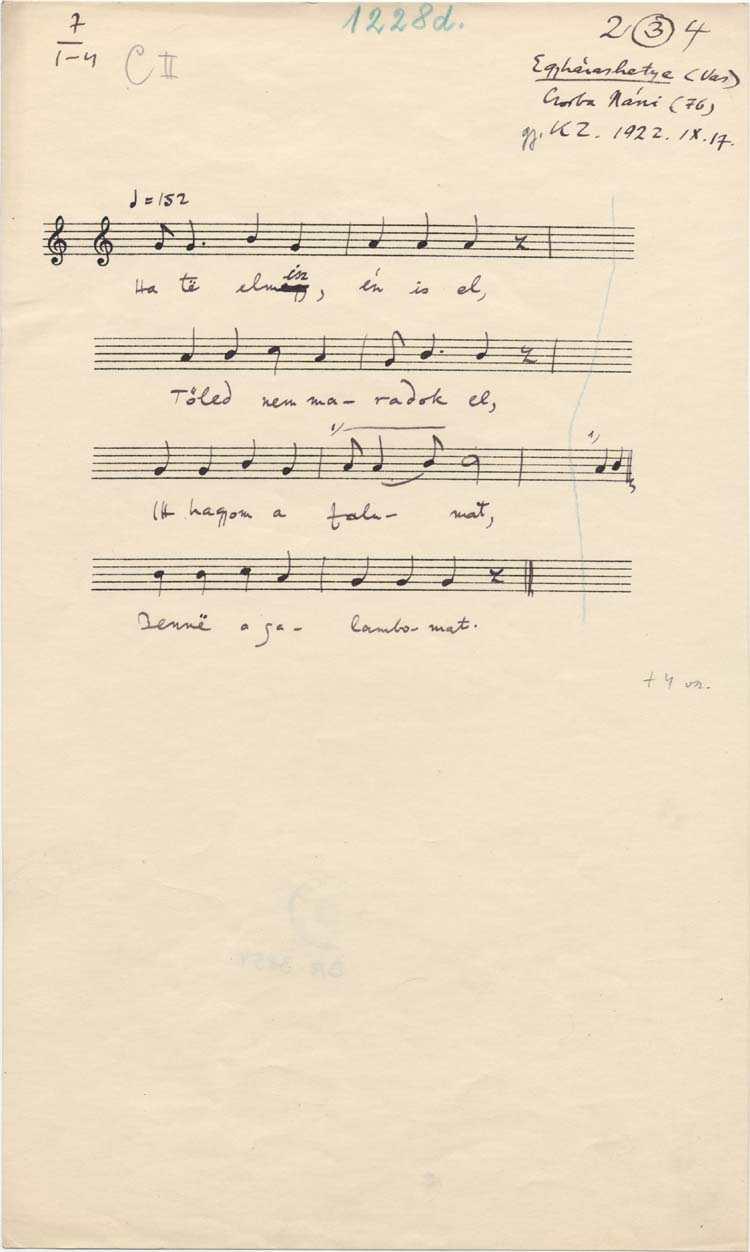 7
I–4
C II
1228d.
2 ③ 4
Egyházashetye (Vas)
Csorba Náni (76)
gj. KZ. 1922. IX. 17.
♩ = 152
Ha të elmész, én is el,
Tőled nem ma- radok el,
1)
1)
Itt hagyom a falu- mat,
Bennë a ga- lambo- mat.
+ 4 vsz.